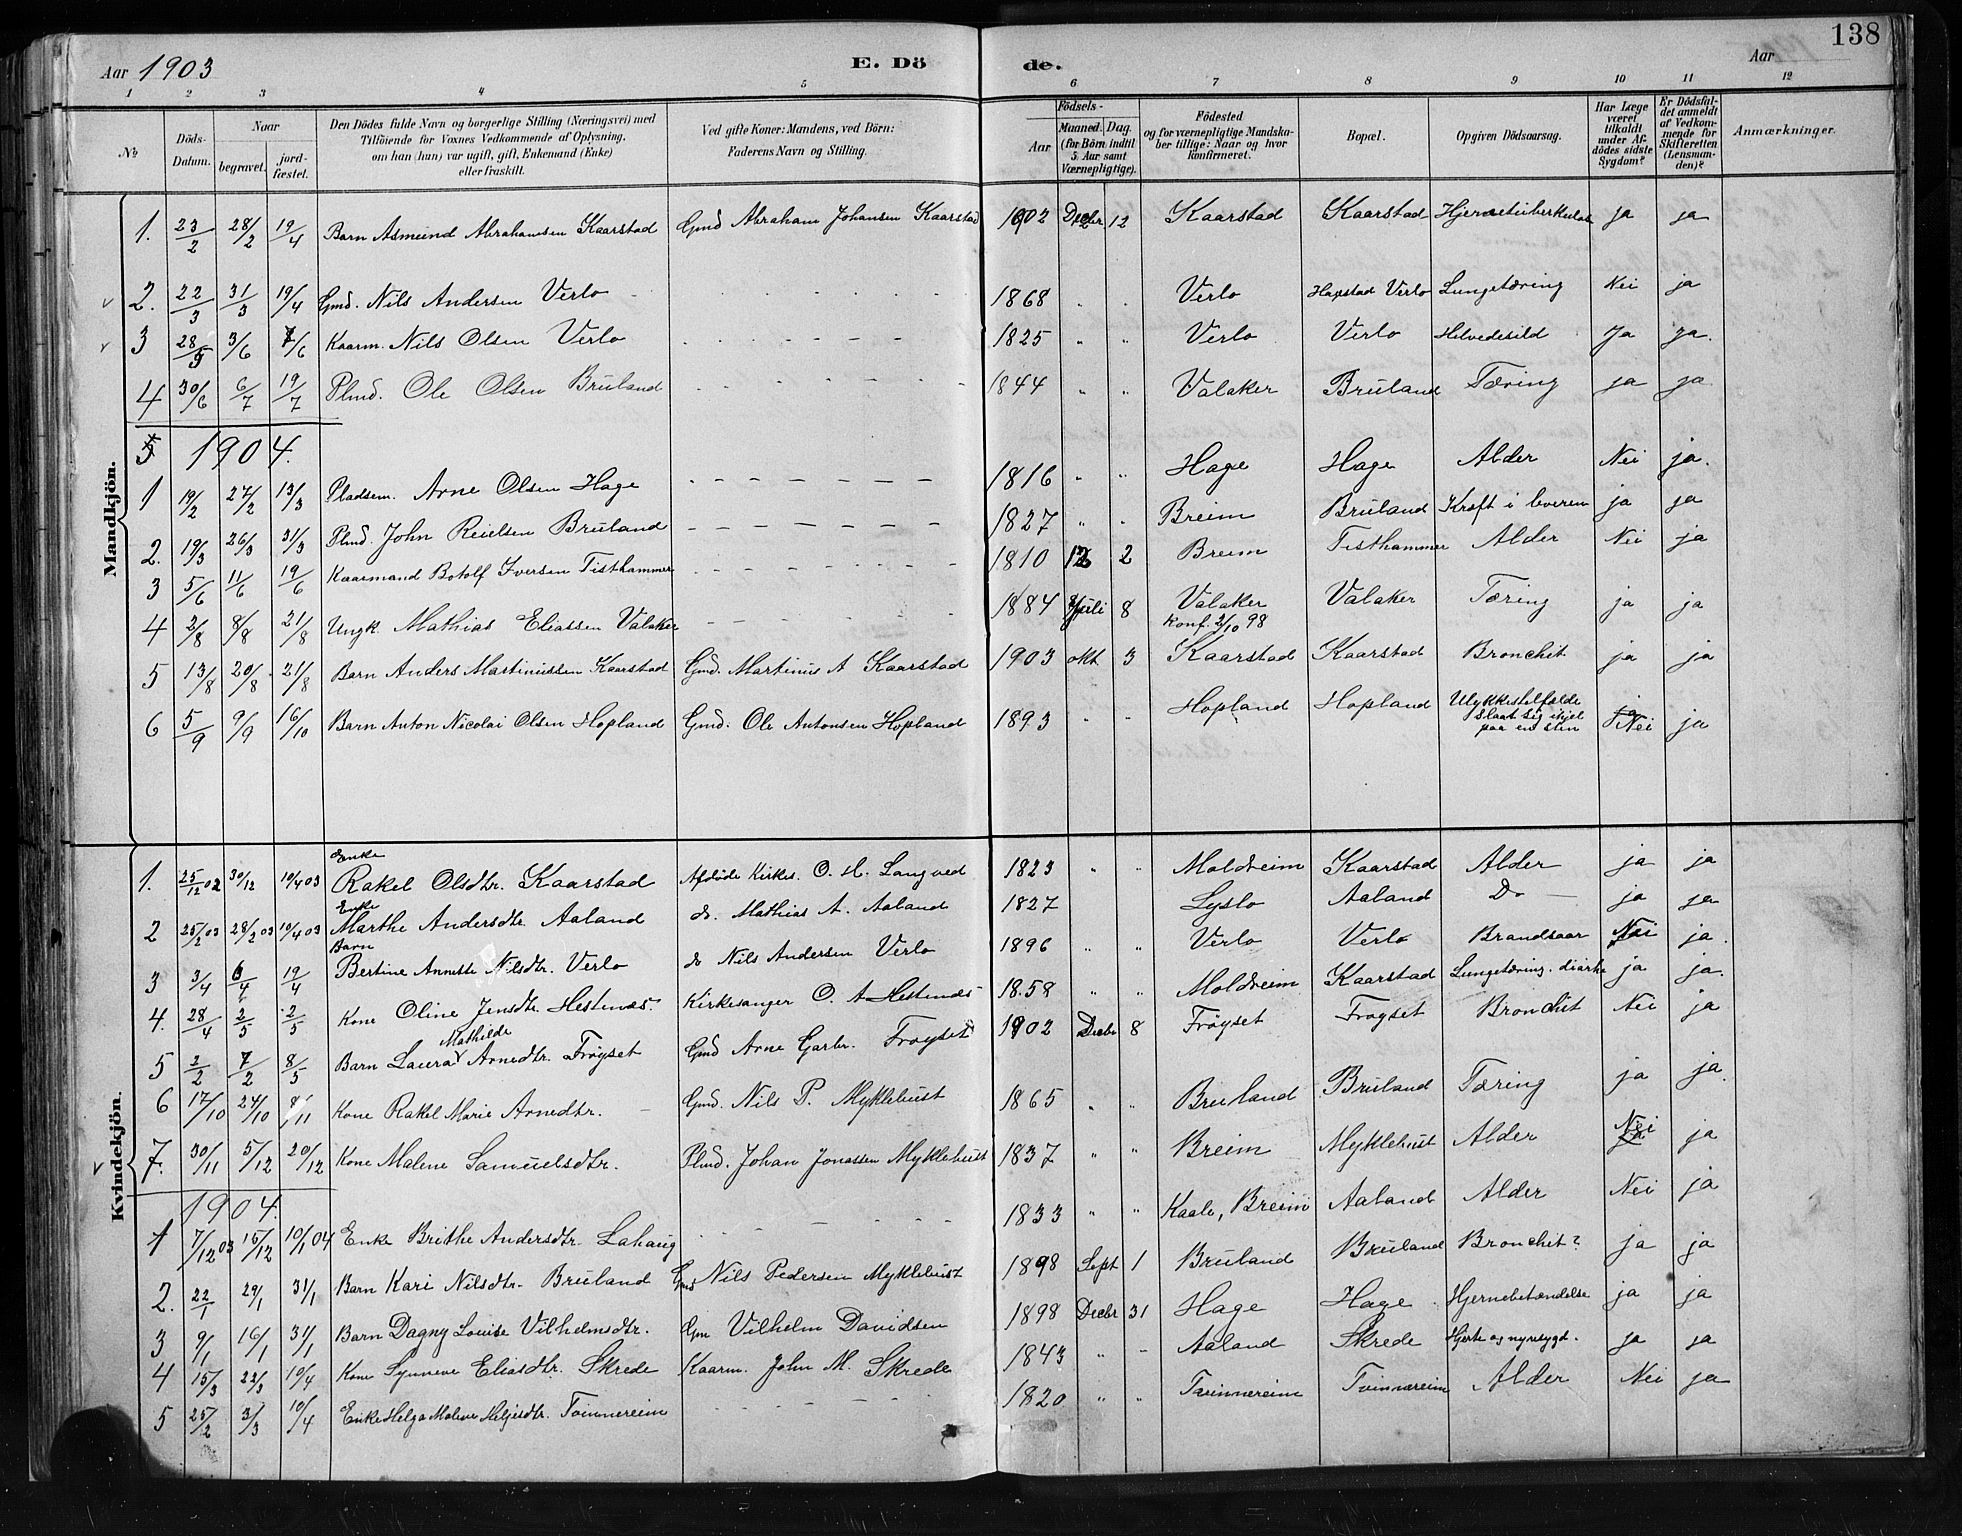 138
Aar 1903 E. Dö de. Aar
1 2 3 4 5 6 7 8 9 10 11 12
№ Döds-Datum. Naar begravet. jord-fæstet. Den Dödes fulde Navn og borgerlige Stilling (Næringsvei) med Tilföiende for Voxnes Vedkommende af Oplysning, om han (hun) var ugift, gift, Enkemand (Enke) eller fraskilt. Ved gifte Koner: Mandens, ved Börn: Faderens Navn og Stilling. Födsels- Aar Maaned. Dag. (for Börn indtil 5 Aar samt Værnepligtige). Födested og for værnepligtige Mandskaber tillige: Naar og hvor konfirmeret. Bopæl. Opgiven Dödsaarsag. Har Læge været tilkaldt under Afdödes sidste Sygdom? Er Dödsfaldet anmeldt af Vedkommende for Skifteretten (Lensmanden)? Anmærkninger.
Mandkjön.
1. 23/2 28/2 19/4 Barn Asmund Abrahamsen Kaarstad Gmd Abraham Johansen Kaarstad 1902 Decbr 12 Kaarstad Kaarstad Hjernetuberkulos ja ja
2. 22/3 31/3 19/4 Gmd. Nils Andersen Verlo 1868 " " Verlo Hapstad Verlo Lungetæring Nei ja
3 28/5 3/6 7/6 Kaarm. Nils Olsen Verlo 1825 " " Verlo Verlo Helvedesild Ja ja.
4 30/6 6/7 19/7 Plmd. Ole Olsen Bruland 1844 " " Valaker Bruland Tæring ja ja
5 1904.
1 19/2 27/2 13/3 Pladsem. Arne Olsen Hage 1816 " " Hage Hage Alder Nei ja.
2. 19/3 26/3 31/3 Plmd. John Reielsen Bruland 1827 " " Breim Bruland Kræft i leveren ja ja
3 5/6 11/6 19/6 Kaarmand Botolf Iversen Tisthammer 1810 12 2 Breim Tisthammer Alder Nei ja
4 2/8 8/8 21/8 Ungk. Mathias Eliassen Valaker 1884 juli 8 Valaker Konf. 2/10 98 Valaker Tæring ja ja
5 13/8 20/8 21/8 Barn Anders Martinussen Kaarstad Gmd. Martinus A Kaarstad 1903 okt 3 Kaarstad Kaarstad Bronchit ja ja
6 5/9 9/9 16/10 Barn Anton Nicolai Olsen Hopland Gmd. Ole Antonsen Hopland 1893 " " Hopland Hopland Ulykkestilfælde slaat sig ihjel paa en sten Nei ja
Kvindekjön.
1. 25/12 02 30/12 10/4 03 Enke Rakel Olsdtr. Kaarstad Afdöde Kirkes. O. H. Langved 1823 " " Moldreim Kaarstad Alder ja ja
2 25/2 03 28/2 03 10/4 03 Enke Marthe Andersdtr. Aaland do. Mathias A. Aaland 1827 Lyslo Aaland Do — ja ja
3 3/4 6/4 19/4 Barn Bertine Annette Nilsdtr. Verlo do Nils Andersen Verlo 1896 " " Verlo Verlo Brandsaar Nei ja.
4. 28/4 2/5 2/5 Kone Oline Jensdtr. Hestenæs. Kirkesanger O. A Hestenæs 1858 " " Moldreim Kaarstad Lungetæring. diarhe ja ja.
5 2/2 7/2 8/5 Barn Laura Mathilde Arnedtr. Fröyset Gmd Arne Garbr. Froyset 1902 Decbr 8 Fröyset Froyset Bronchit Nei ja
6 17/10 24/10 8/11 Kone Rakel Marie Arnedtr. Gmd. Nils P. Myklebust 1865 " " Bruland Bruland Tæring ja ja.
7. 30/11 5/12 20/12 Kone Malene Samuelsdtr. Plmd. Johan Jonassen Myklebust 1837 " " Breim Myklebust Alder Nei ja
1904.
1 7/12 03 15/12 10/1 04 Enke Brithe Andersdtr. Lahaug 1833 " " Kaale, Breim Aaland Alder Nei ja
2. 22/1 29/1 31/1 Barn Kari Nilsdtr. Bruland Gmd Nils Pedersen Myklebust 1898 Sept 1 Bruland Bruland Bronchit? ja ja
3 9/1 16/1 31/1 Barn Dagny Louise Vilhelmsdtr. Gm Vilhelm Davidsen 1898 Decbr 31 Hage Hage Hjernebetændelse ja ja
4 15/3 22/3 10/4 Kone Synneve Eliasdtr. Skrede Kaarm. John M. Skrede 1843 " " Aaland Skrede Hjerte og nyresygd. ja ja
5 25/2 3/3 10/4 Enke Helga Malene Heljesdtr. Tvinnereim 1820 " " Tvinnereim Tvinnereim Alder Nei ja